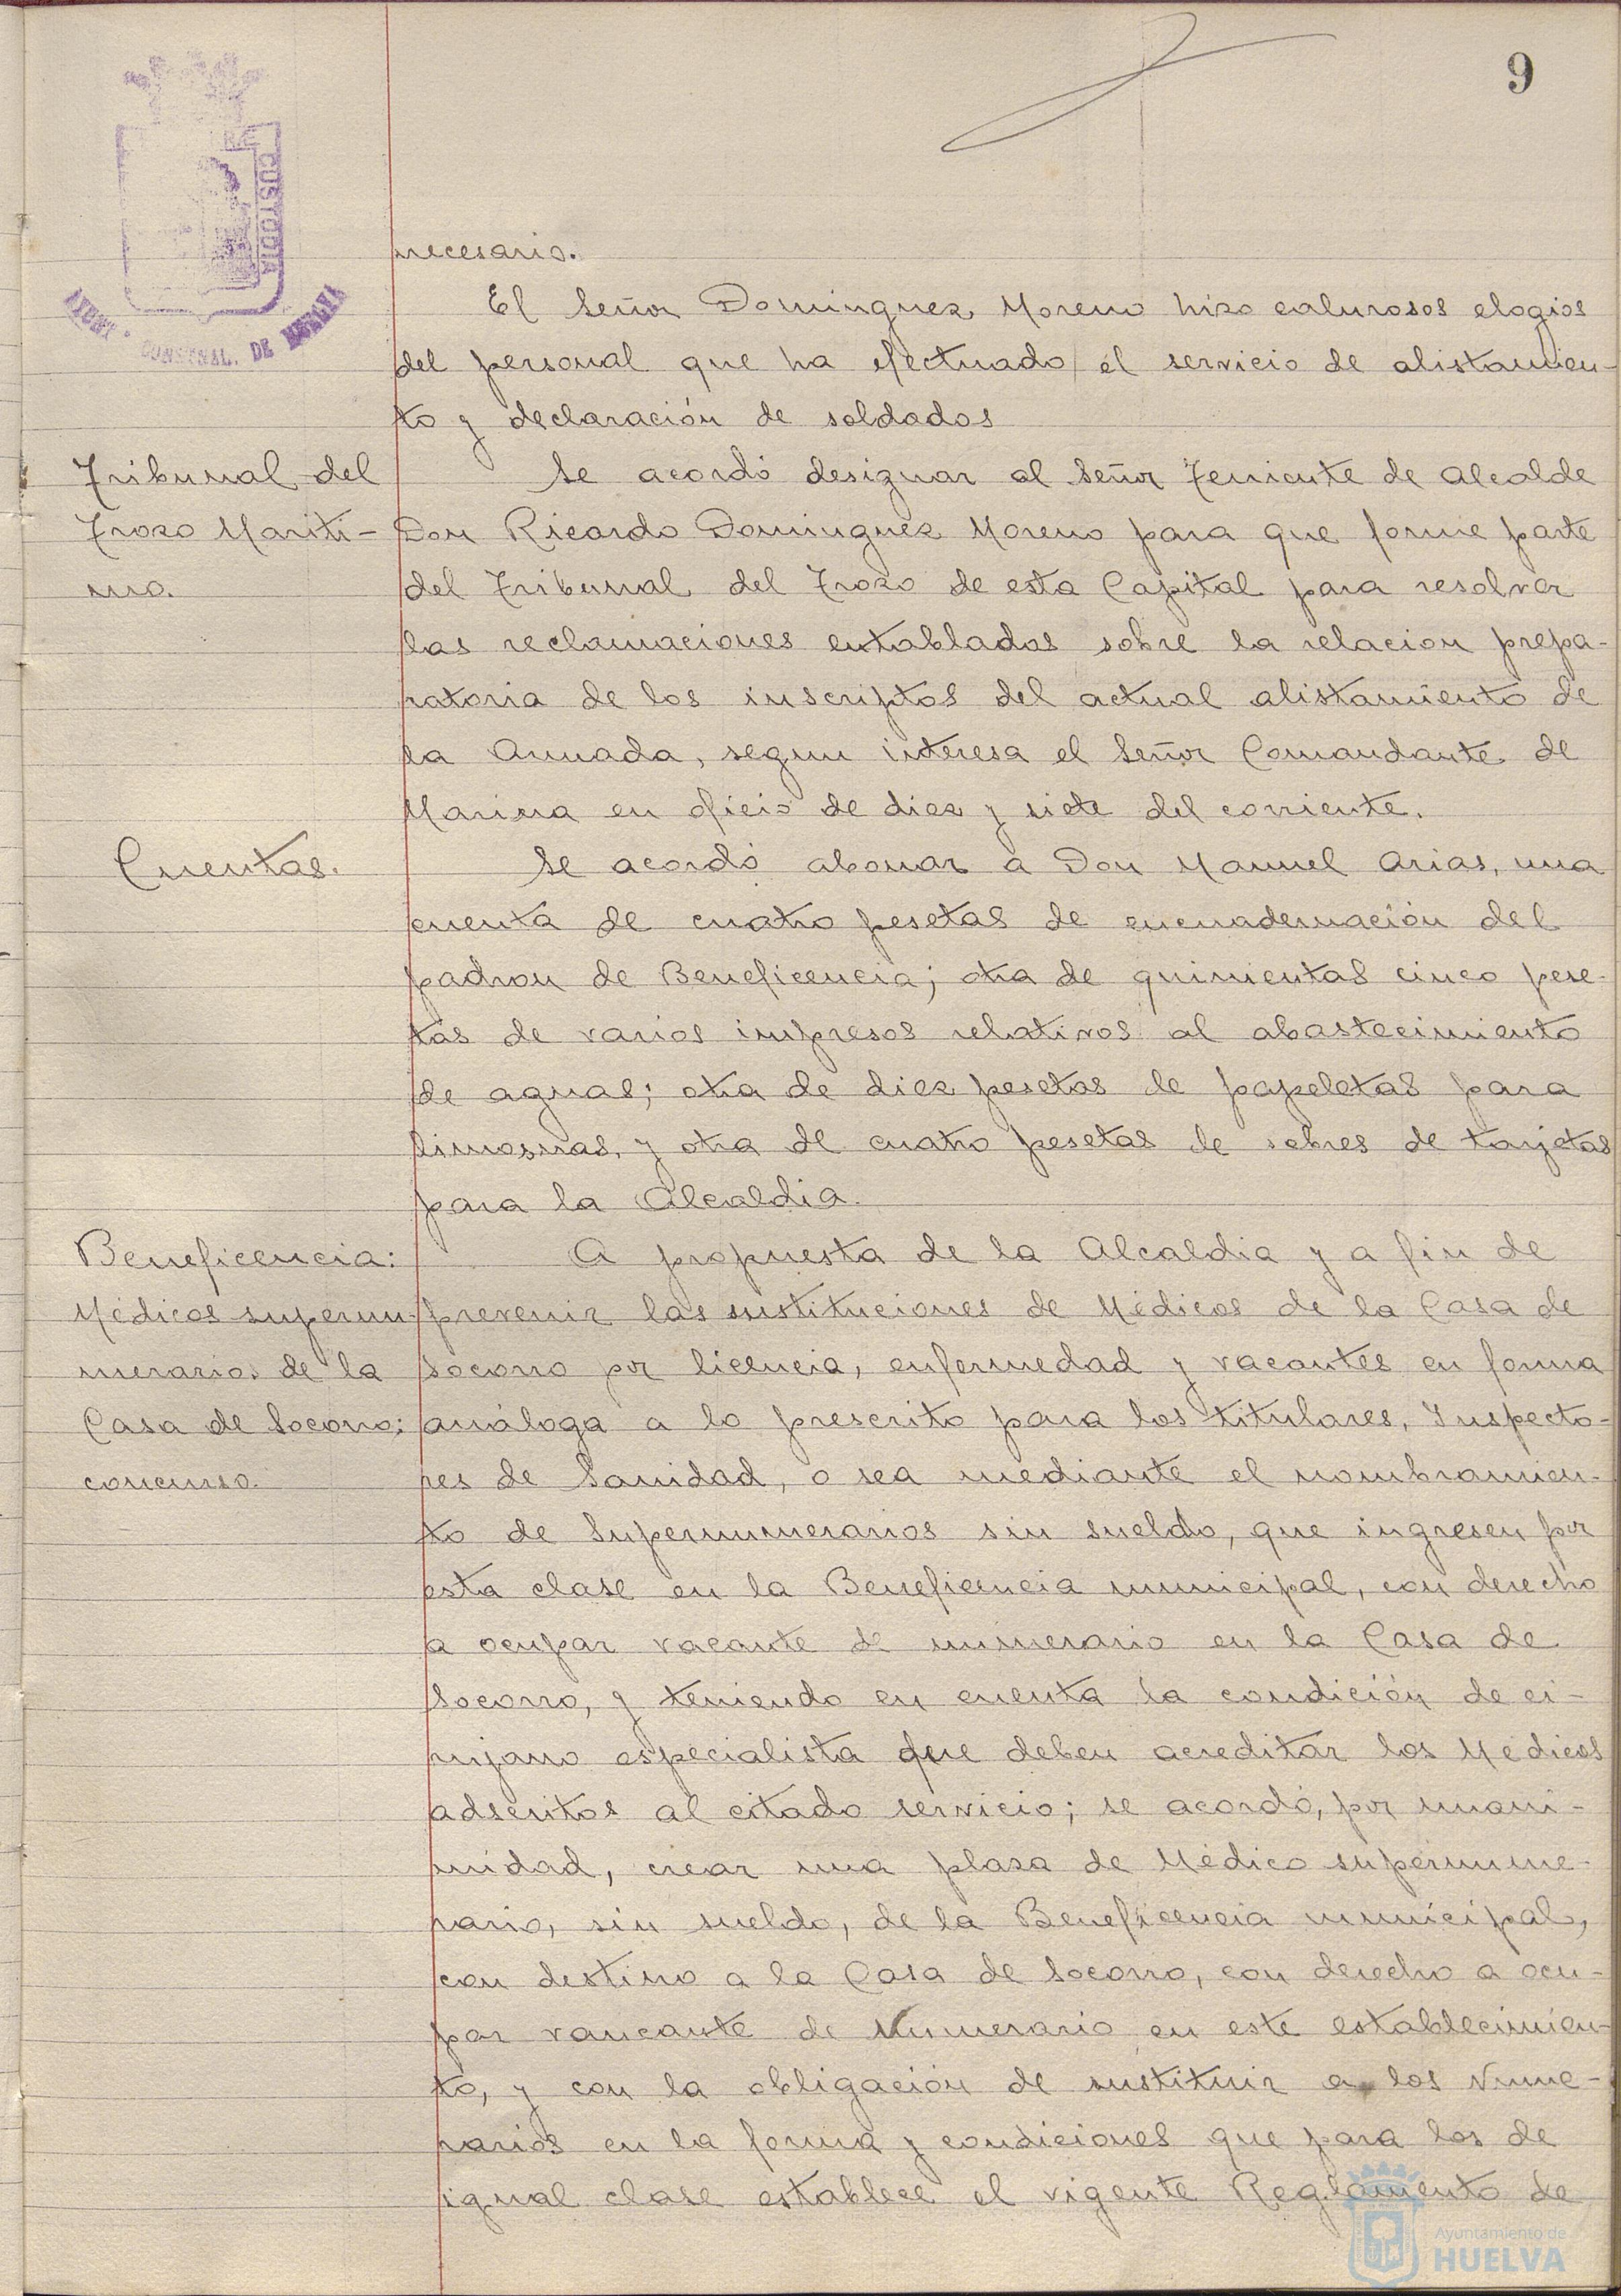 9
CUSTODIA
AYUNT. CONSTNAL. DE HUELVA
necesario.
El Señor Dominguez Moreno hizo calurosos elogios
del personal que ha efectuado el servicio de alistamien-
to y declaración de soldados
Tribunal del
Trozo Maríti-
mo.
Se acordó designar al Señor Teniente de Alcalde
Don Ricardo Dominguez Moreno para que forme parte
del Tribunal del Trozo de esta Capital para resolver
las reclamaciones entabladas sobre la relacion prepa-
ratoria de los inscriptos del actual alistamiento de
la Armada, segun interesa el Señor Comandante de
Marina en oficio de diez y siete del corriente.
Cuentas.
Se acordó abonar a Don Manuel Arias, una
cuenta de cuatro pesetas de encuadernación del
padron de Beneficencia; otra de quinientas cinco pese-
tas de varios impresos relativos al abastecimiento
de aguas; otra de diez pesetas de papeletas para
limosnas, y otra de cuatro pesetas de sobres de tarjetas
para la Alcaldia.
Beneficencia:
Médicos supernu-
merarios de la
Casa de Socorro;
concurso.
A propuesta de la Alcaldia y a fin de
prevenir las sustituciones de Médicos de la Casa de
Socorro por licencia, enfermedad y vacantes en forma
análoga a lo prescrito para los titulares, Inspecto-
res de Sanidad, o sea mediante el nombramien-
to de Supernumerarios sin sueldo, que ingresen por
esta clase en la Beneficencia municipal, con derecho
a ocupar vacante de numerario en la Casa de
Socorro, y teniendo en cuenta la condición de ci-
rujano especialista que deben acreditar los Médicos
adscritos al citado servicio; se acordó, por unani-
midad, crear una plaza de Médico supernume-
rario, sin sueldo, de la Beneficencia municipal,
con destino a la Casa de Socorro, con derecho a ocu-
par vancante de Numerario en este establecimien-
to, y con la obligación de sustituir a los Nume-
rarios en la forma y condiciones que para los de
igual clase establece el vigente Reglamento de
Ayuntamiento de
HUELVA